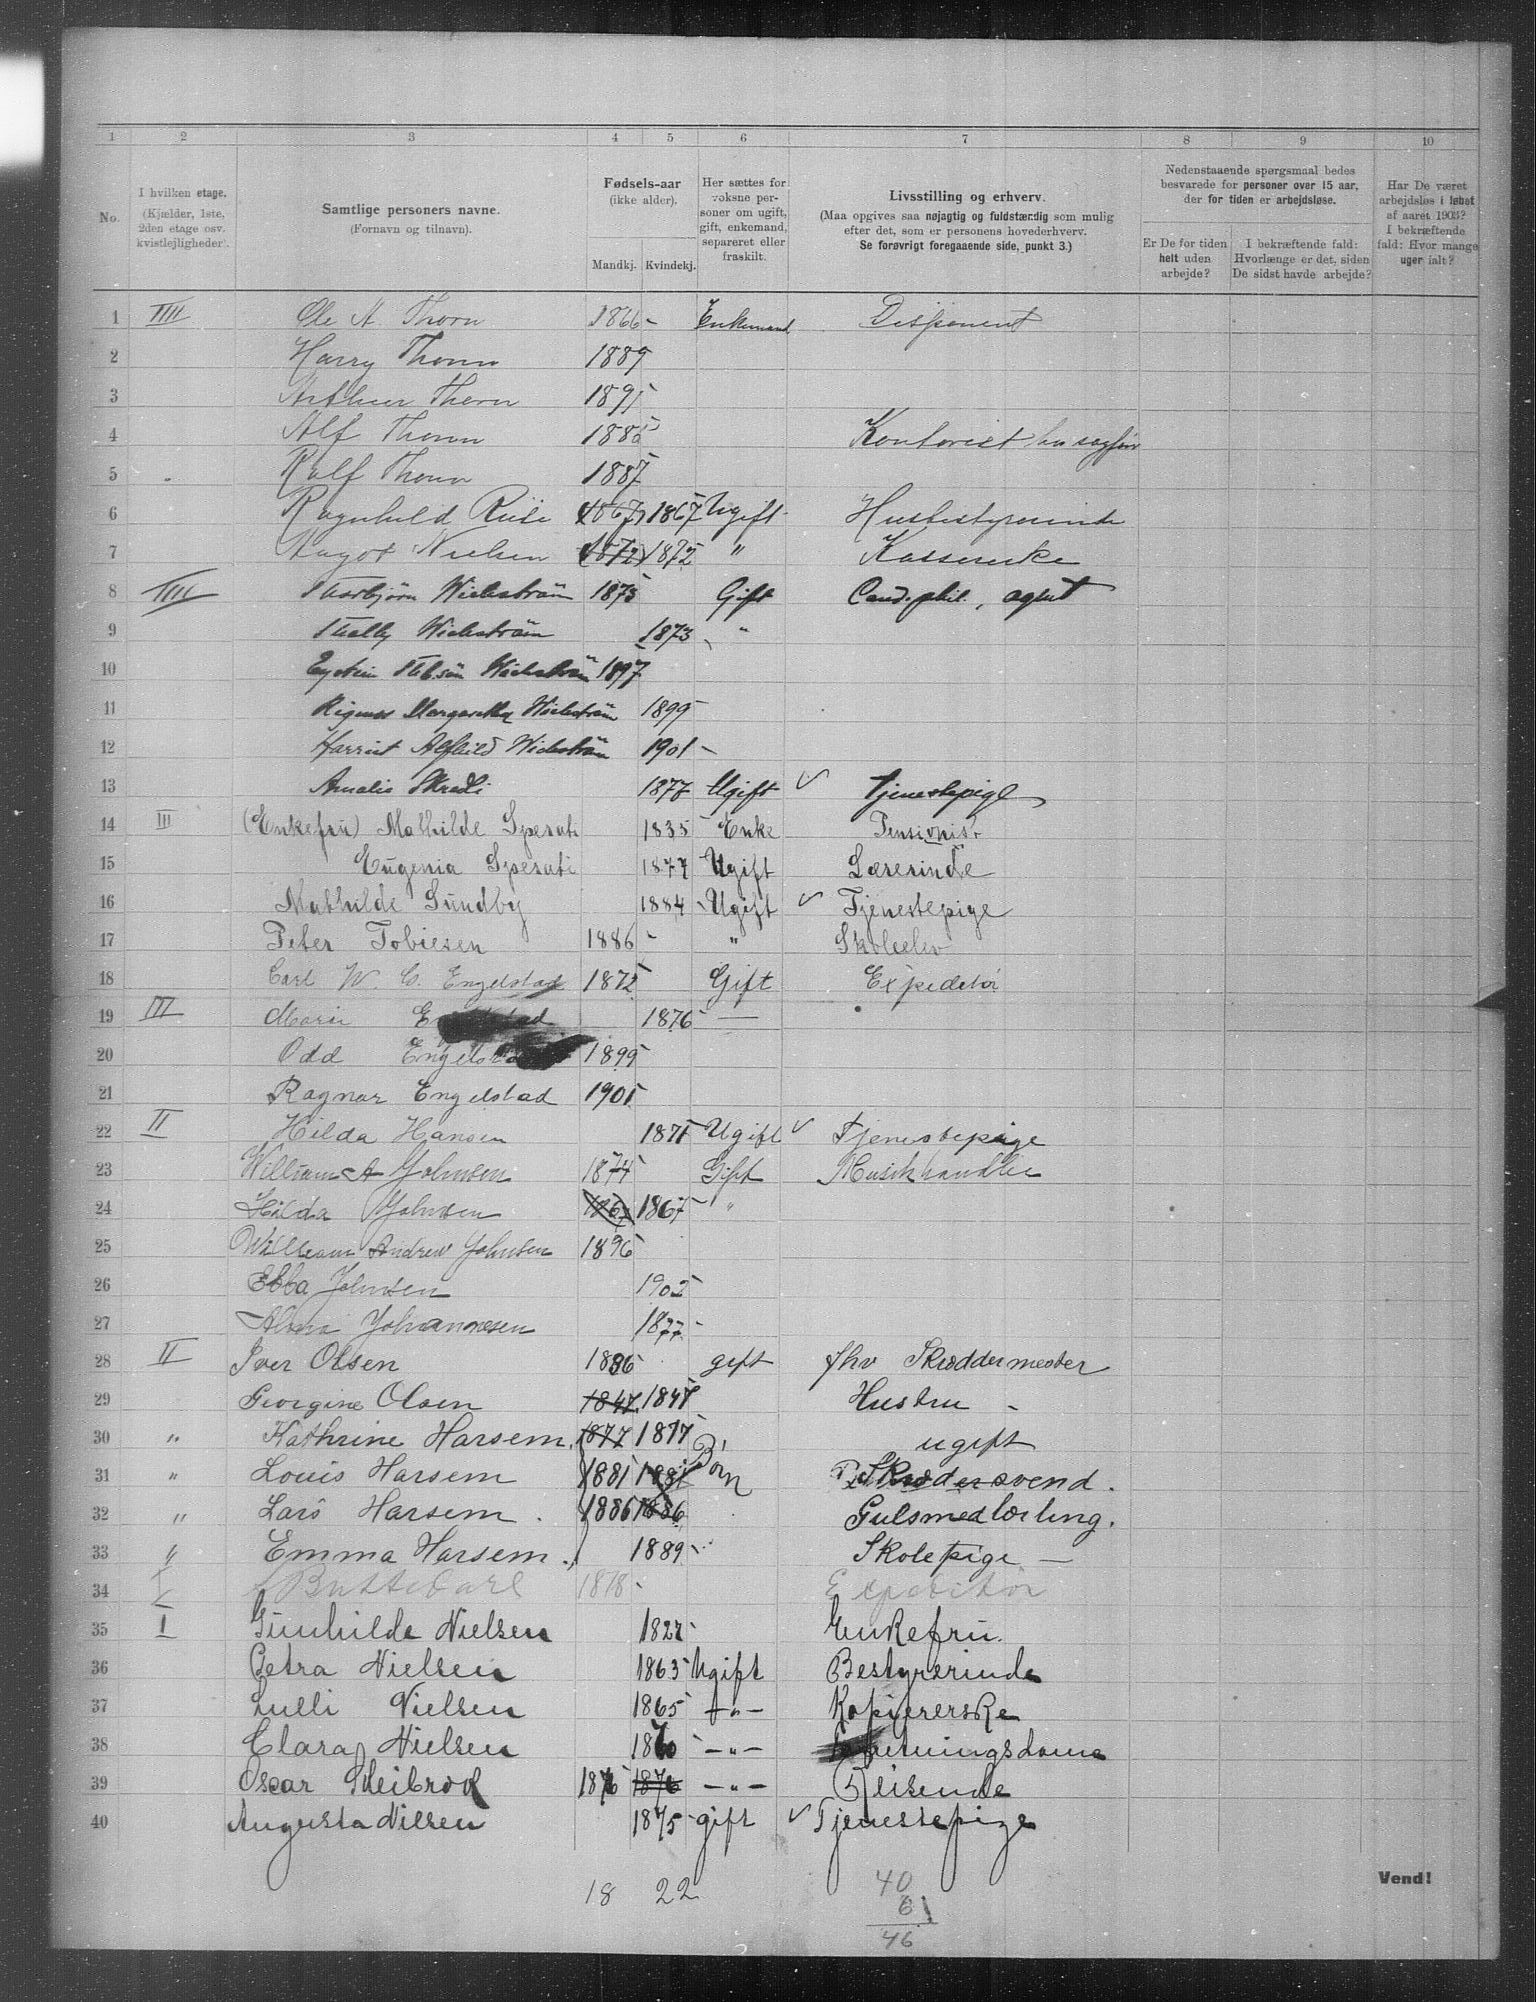 1 2 3 4 5 6 7 8 9 10
No.
I hvilken etage.
(Kjælder, 1ste,
2den etage osv.
kvistlejligheder).
Samtlige personers navne.
(Fornavn og tilnavn).
Fødsels-aar
(ikke alder).
Mandkj. Kvindekj.
Her sættes for
voksne per-
soner om ugift,
gift, enkemand,
separeret eller
fraskilt.
Livsstilling og erhverv.
(Maa opgives saa nøjagtig og fuldstændig som mulig
efter det, som er personens hovederhverv.
Se forøvrigt foregaaende side, punkt 3.)
Nedenstaaende spørgsmaal bedes
besvarede for personer over 15 aar,
der for tiden er arbejdsløse.
Er De for tiden
helt uden
arbejde?
I bekræftende fald:
Hvorlænge er det, siden
De sidst havde arbejde?
Har De været
arbejdsløs i løbet
af aaret 1903?
I bekræftende
fald: Hvor mange
uger ialt?
1 IIII Ole A. Thorn 1866 - Enkemand Disponent
2 Harry Thorn 1889
3 Arthur Thorn 1891
4 Alf Thorn 1885 Kontorist
5 Rolf Thorn 1887
6 Ragnhild Riise (1867) 1867 Ugift Husbestyrerinde
7 Aagot Nielsen (1872) 1872 " Kassererske
8 IIII Thorbjørn Wickstrøm 1873 Gift Cand. phil., agent
9 Thally Wickstrøm 1873 "
10 Wickstrøm 1897
11 Margaretha Wickstrøm 1899
12 Harriet Alfhild Wickstrøm 1901 -
13 Amalie 1877 Ugift ✓ Tjenestepige
14 III (Enkefrü) Mathilde Sperati 1835 Enke Pensionist
15 Eugenia Sperati 1877 Ugift Lærerinde
16 Mathilde Sundby 1884 Ugift ✓ Tjenestepige
17 Peter Tobiesen 1886 - " Skoleelev
18 Carl W. C. Engelstad 1872 Gift Expeditør
19 III Marie 1876 —
20 Odd 1899
21 Ragnar Engelstad 1901
22 II Hilda Hansen 1871 Ugift ✓ Tjenestepige
23 William A Johnsen 1874 Gift Musikhandler
24 Hilda Johnsen 1867 1867 "
25 William Andrew Johnsen 1896
26 Ebba Johnsen 1902
27 Johannesen 1877 -
28 II Iver Olsen 1836 gift fhv Skræddermester
29 Georgine Olsen 1847 1847 Hustru -
30 " Kathrine Harsem 1877 1877 Børn ugift
31 " Louis Harsem 1881 1881 Skræddersvend.
32 " Lars Harsem. 1886 1886 Gulsmedlærling.
33 " Emma Harsem. 1889 Skolepige —
34 1878 - Expeditør
35 I Gunhilde Nielsen 1827 Enkefrü.
36 Petra Nielsen 1863 Ugift Bestyrerinde
37 Lulli Nielsen 1865 -"- Kopiererske
38 Clara Nielsen 1870 -"-
39 Oscar 1876 1876 -"- Reisende
40 Augusta Nilsen 1875 - gift ✓ Tjenestepige
18 22
40
6
46
Vend!